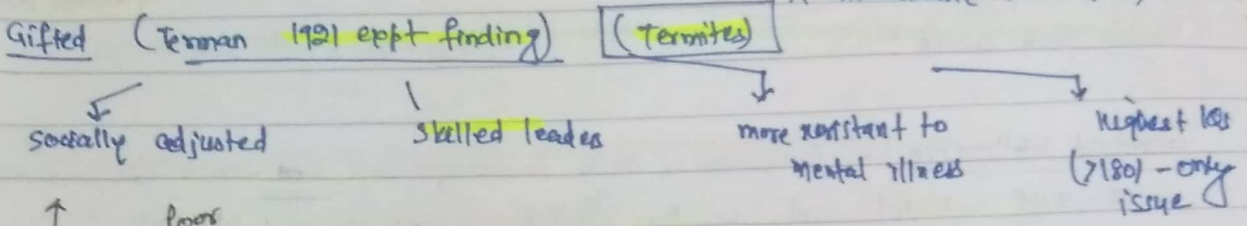 Gifted (Terman 1921 expt finding) (Termites)
socially adjusted
skilled leades
more resistant to
mental illness
highest IQs
(>180) - only
issue
↑ Poor